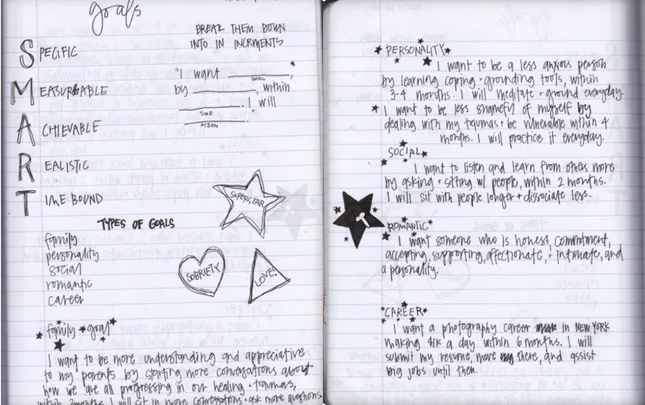 goals
BREAK THEM DOWN
INTO IN INCREMENTS
SPECIFIC
MEASURABLE
ACHIEVABLE
REALISTIC
TIME BOUND
"I want ________,
GOAL
by ________, within
________. I will
TIME
________."
ACTION
SUPERSTAR
SOBRIETY
LOVE!
TYPES OF GOALS
family
personality
social
romantic
career
family goal
I want to be more understanding and appreciative
to my parents by starting more conversations about
how we are all progressing in our healing + traumas,
within 3 months. I will sit in more conversations + ask more questions
PERSONALITY
I want to be a less anxious person
by learning coping + grounding tools, within
3-4 months. I will meditate + ground everyday.
I want to be less shameful of myself by
dealing with my traumas + be vulnerable within 4
months. I will practice it everyday.
SOCIAL
I want to listen and learn from others more
by asking + sitting w/ people, within 2 months.
I will sit with people longer + dissociate less.
ROMANTIC
I want someone who is honest, commitment,
accepting, supporting, affectionate, + intimate, and
a personality.
CAREER
I want a photography career in NEW YORK
making $1K a day within 6 months. I will
submit my resume, move there, and assist
big jobs until then.